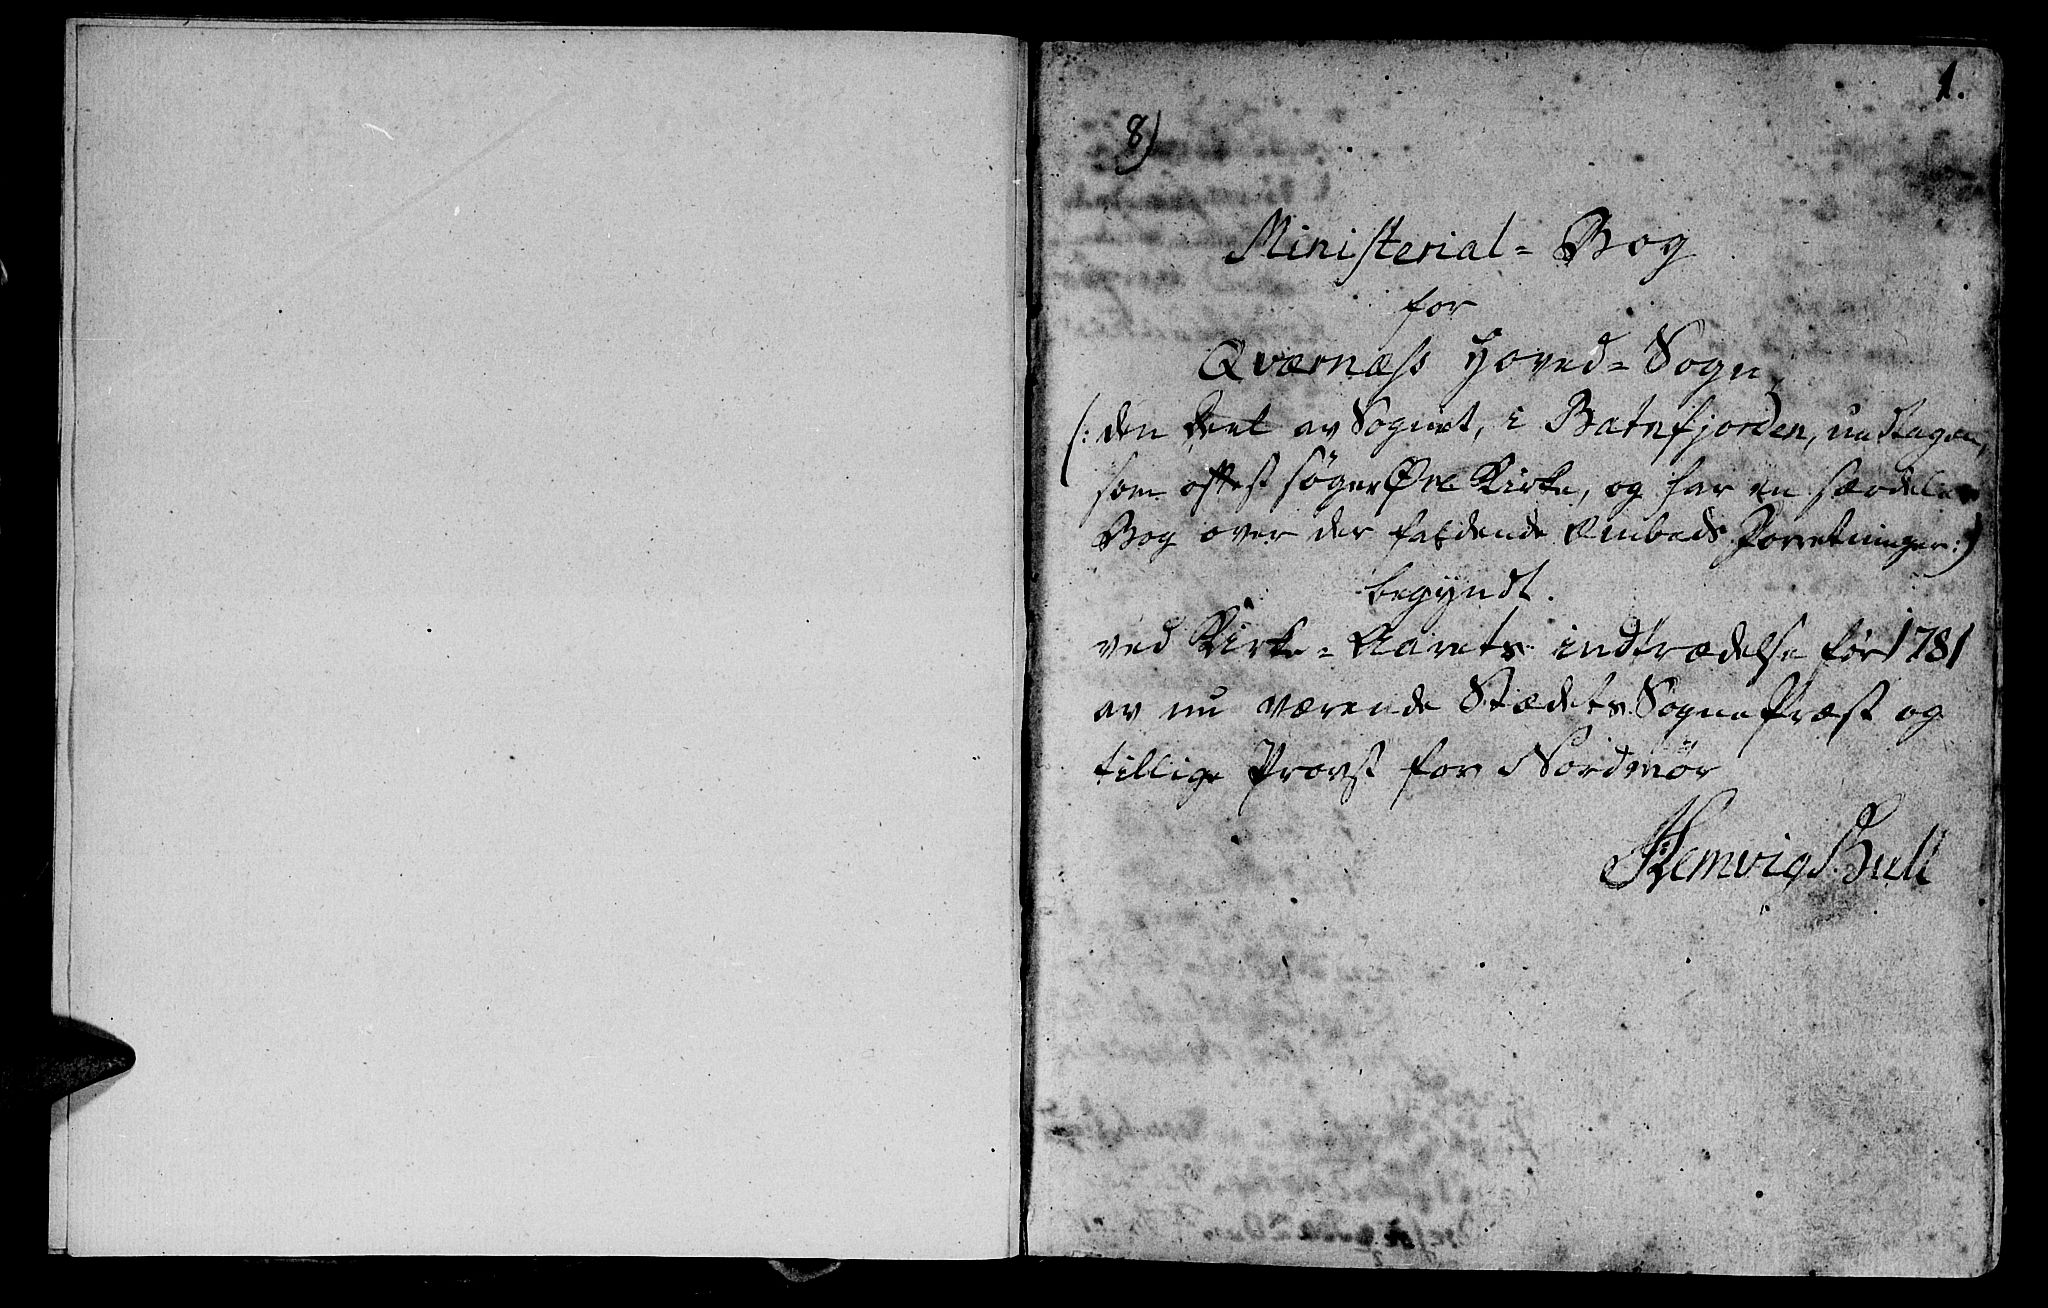 1.
8)
Ministerial=Bog
for
Qværnæss Hoved=Sogn,
(: den Deel av Sognet, i Batnfjorden, undtagen,
som oftest søger Øre Kirke, og har en særdeles
Bog over der faldende Embeds Forretninger :)
begyndt.
ved Kirke=Aarets indtrædelse for 1781
av nu værende Stædets Sogne Præst og
tillige Provst for Nordmør
Hemvig Bull